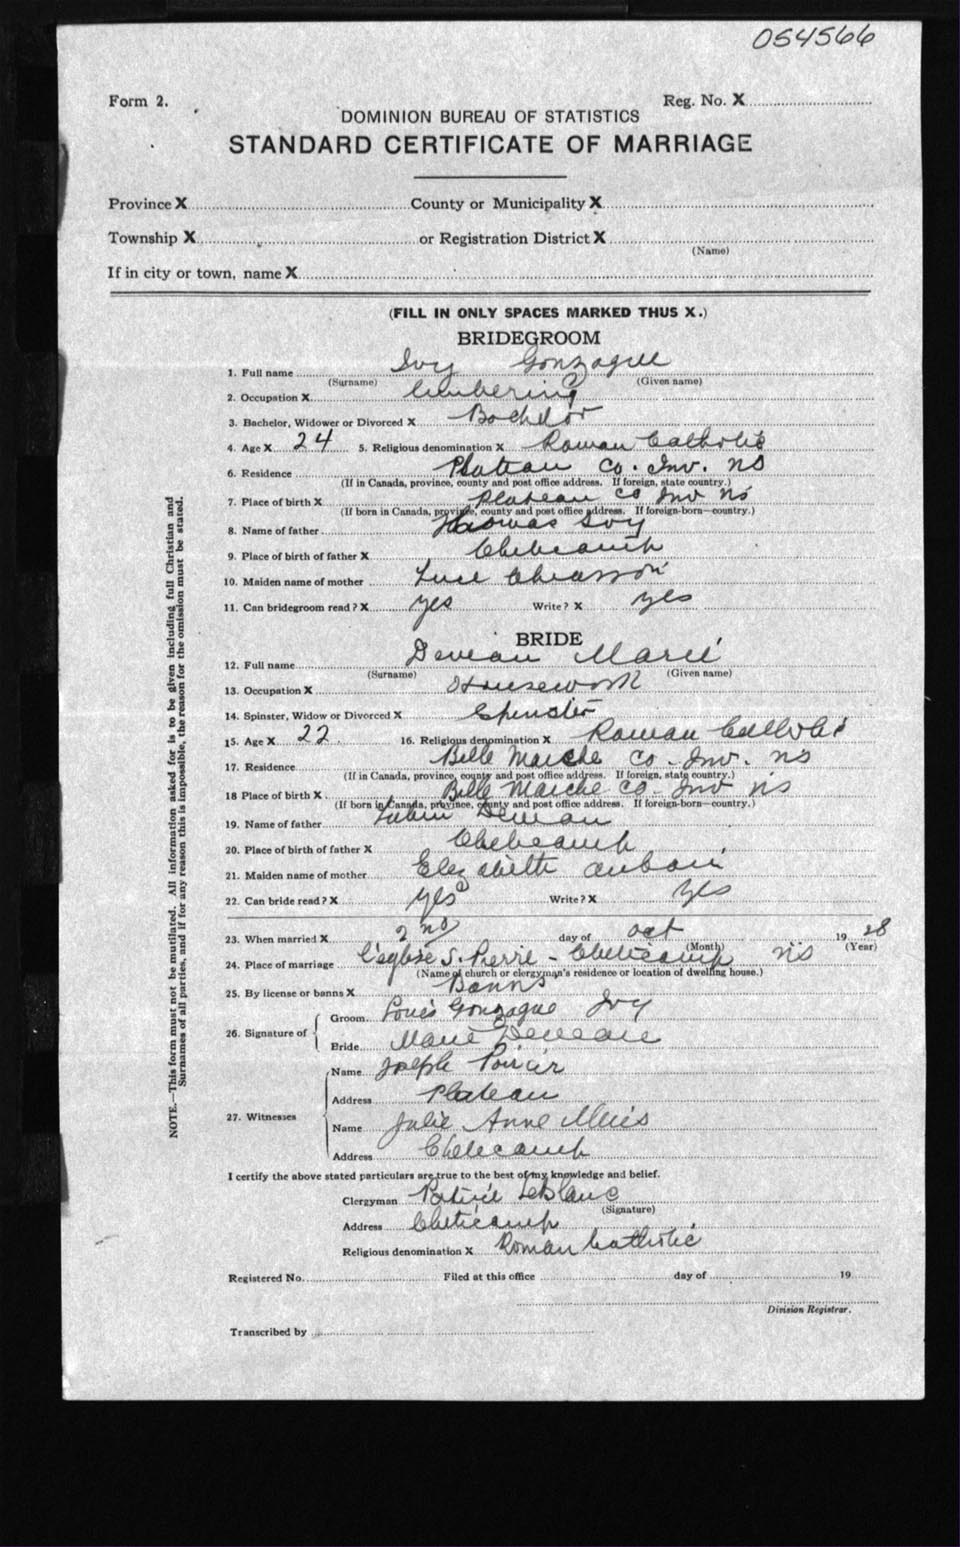 054566
Form 2. Reg. No. X
DOMINION BUREAU OF STATISTICS
STANDARD CERTIFICATE OF MARRIAGE
Province X County or Municipality X
Township X or Registration District X
(Name)
If in city or town, name X
(FILL IN ONLY SPACES MARKED THUS X.)
BRIDEGROOM
1. Full name Ivy Gonzague
(Surname) (Given name)
2. Occupation X
3. Bachelor, Widower or Divorced X Bachelor
4. Age X 24 5. Religious denomination X Roman Catholic
6. Residence Plateau Co. Inv. NS
(If in Canada, province, county and post office address. If foreign, state country.)
7. Place of birth X Plateau Co Inv NS
(If born in Canada, province, county and post office address. If foreign-born—country.)
8. Name of father Thomas Ivy
9. Place of birth of father X Cheticamp
10. Maiden name of mother Luce Chiasson
11. Can bridegroom read? X yes Write? X yes
BRIDE
12. Full name Deveau Marie
(Surname) (Given name)
13. Occupation X Housework
14. Spinster, Widow or Divorced X Spinster
15. Age X 22 16. Religious denomination X Roman Catholic
17. Residence Belle Marche Co. Inv. NS
(If in Canada, province, county and post office address. If foreign, state country.)
18 Place of birth X Belle Marche Co. Inv NS
(If born in Canada, province, county and post office address. If foreign-born—country.)
19. Name of father Lubin Deveau
20. Place of birth of father X Cheticamp
21. Maiden name of mother Elizabeth
22. Can bride read? X yes Write? X yes
23. When married X 2nd day of Oct 1928
(Month) (Year)
24. Place of marriage L'eglise S. Pierre - Cheticamp NS
(Name of church or clergyman's residence or location of dwelling house.)
25. By license or banns X Banns
26. Signature of Groom Louis Gonzague Ivy
Bride Marie Deveau
27. Witnesses Name Joseph Poirier
Address Plateau
Name Julie Anne
Address Cheticamp
I certify the above stated particulars are true to the best of my knowledge and belief.
Clergyman LeBlanc
(Signature)
Address Cheticamp
Religious denomination X Roman Catholic
Registered No. Filed at this office day of 19
Division Registrar.
Transcribed by
NOTE.—This form must not be mutilated. All information asked for is to be given including full Christian and
Surnames of all parties, and if for any reason this is impossible, the reason for the omission must be stated.